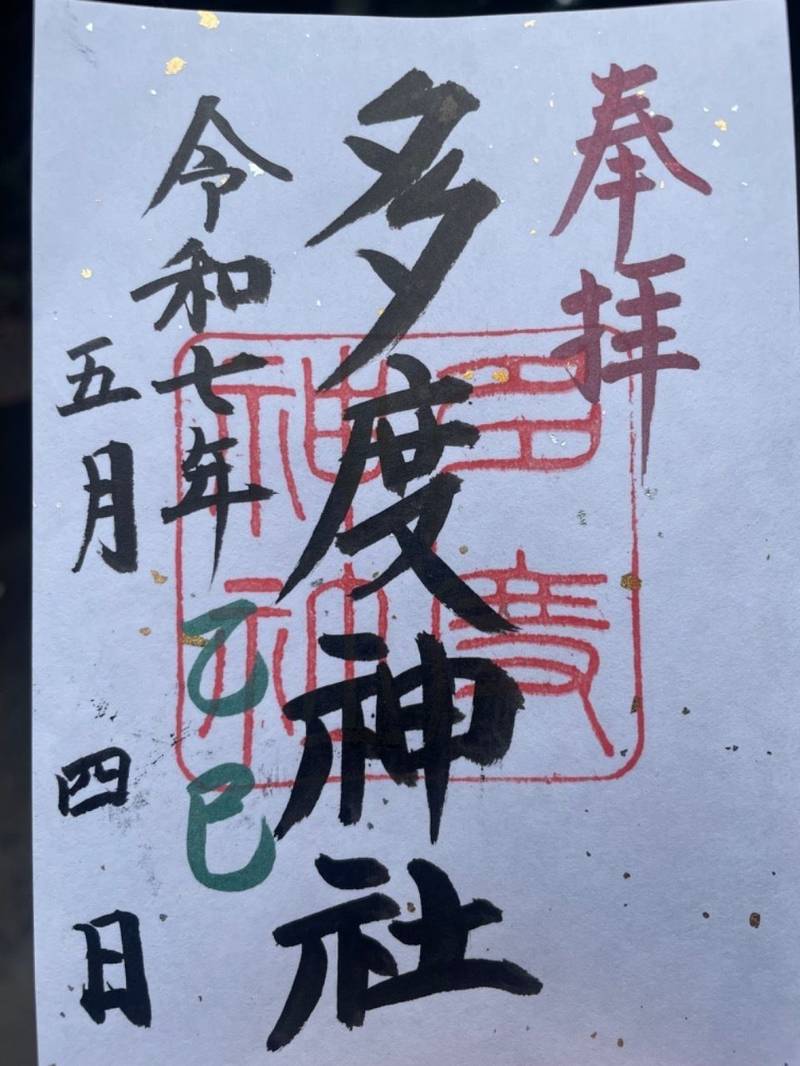 奉拝
多度神社
多度神社
令和七年乙巳
五月四日